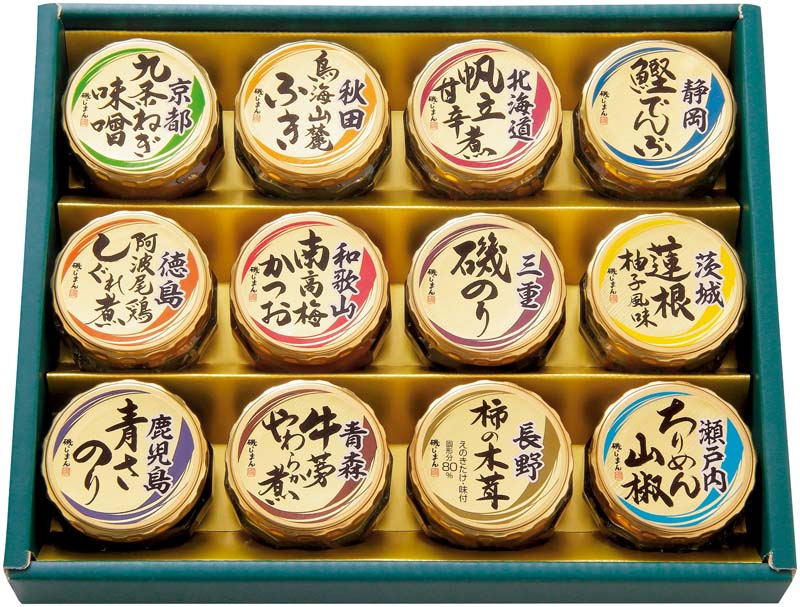 京都
九条ねぎ
味噌
磯じまん
秋田
鳥海山麓
ふき
磯じまん
北海道
帆立
甘辛煮
磯じまん
静岡
鰹でんぶ
磯じまん
徳島
阿波尾鶏
しぐれ煮
磯じまん
和歌山
南高梅
かつお
磯じまん
三重
磯のり
磯じまん
茨城
蓮根
柚子風味
磯じまん
鹿児島
青さ
のり
磯じまん
青森
牛蒡
やわらか煮
磯じまん
長野
柿の木茸
えのきたけ・味付
固形分80%
磯じまん
瀬戸内
ちりめん
山椒
磯じまん